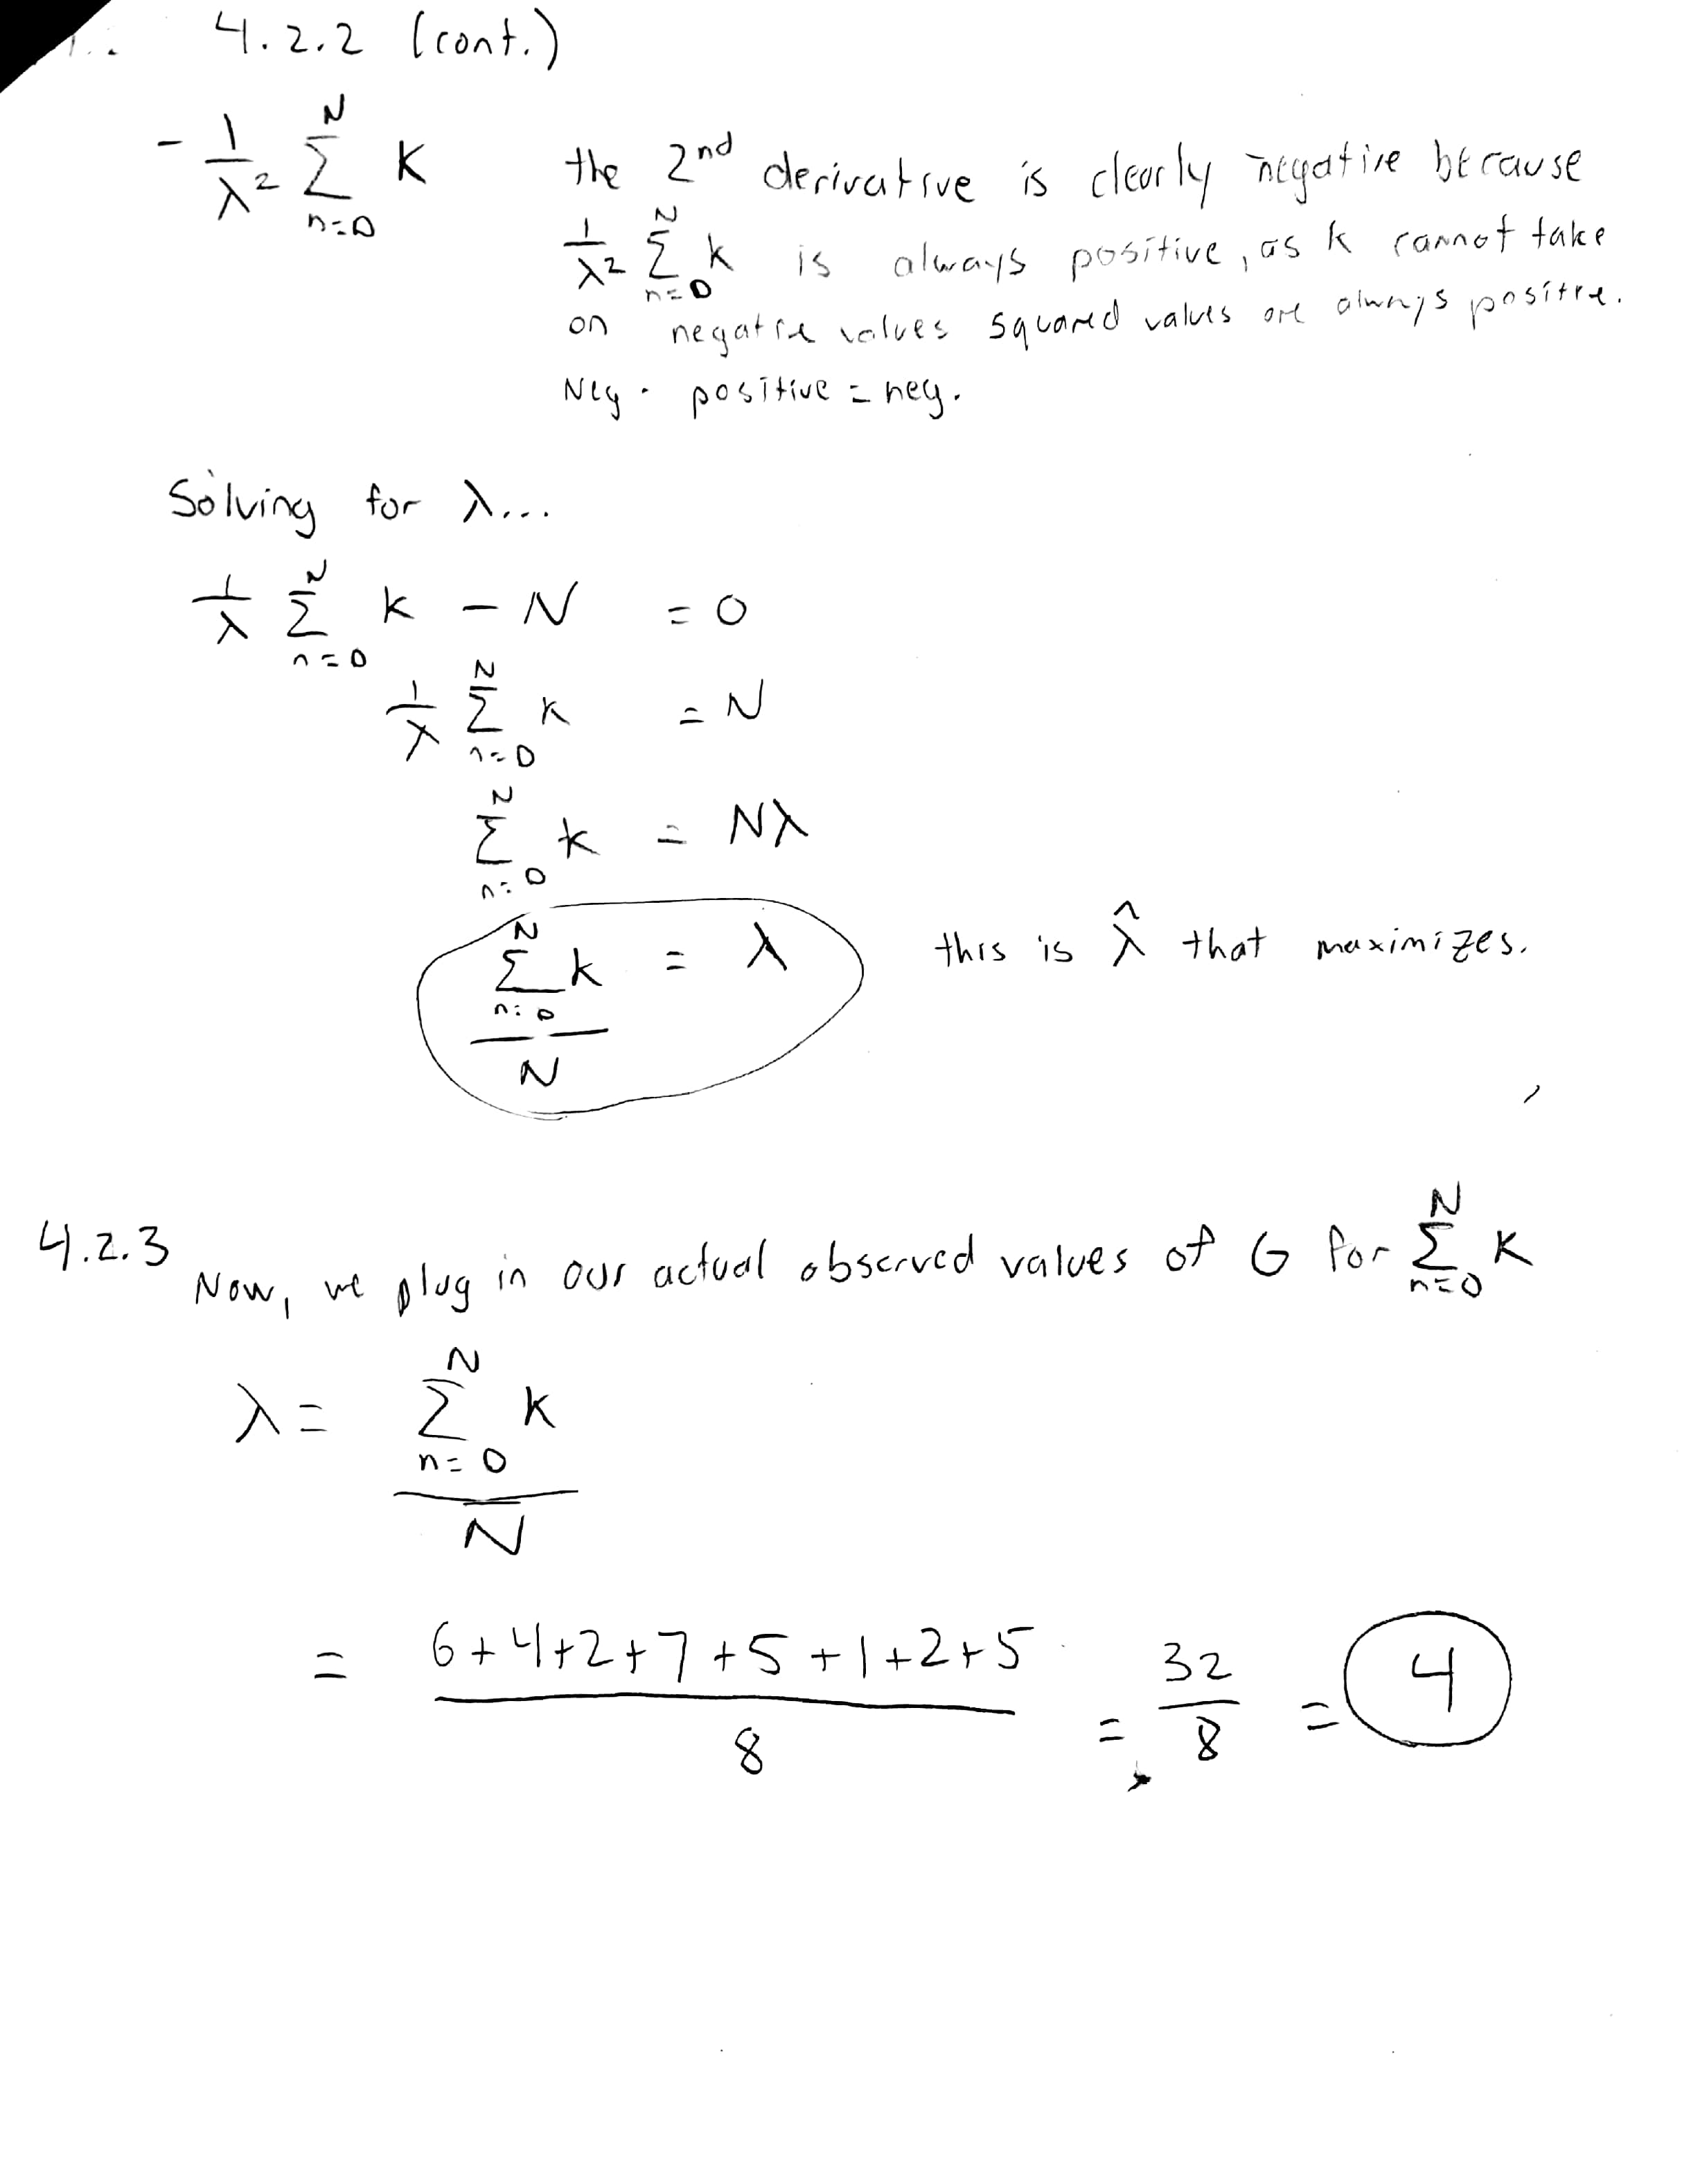 4.2.2 (cont.)
- 1/λ² Σ_{n=0}^{N} K
the 2nd derivative is clearly negative because
1/λ² Σ_{n=0}^{N} K is always positive, as k cannot take
on negative values squared values are always positive.
Neg · positive = neg.
Solving for λ...
1/λ Σ_{n=0}^{N} K - N = 0
1/λ Σ_{n=0}^{N} K = N
Σ_{n=0}^{N} K = Nλ
Σ_{n=0}^{N} K / N = λ this is λ̂ that maximizes.
4.2.3 Now, we plug in our actual observed values of G for Σ_{n=0}^{N} K
λ = Σ_{n=0}^{N} K / N
= 6+4+2+7+5+1+2+5 / 8 = 32/8 = 4